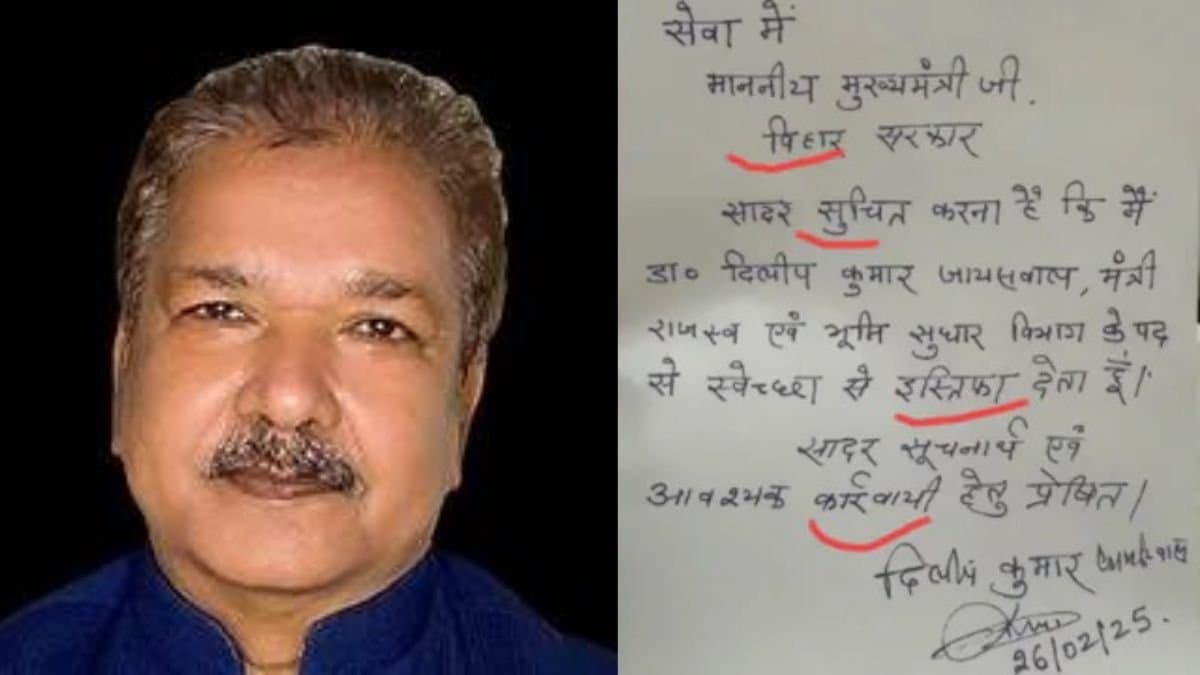 सेवा में
माननीय मुख्यमंत्री जी.
पिहार सरकार
सादर सुचित करना है कि मैं
डा० दिलीप कुमार जायसवाल, मंत्री
राजस्व एवं भूमि सुधार विभाग के पद
से स्वेच्छा से इस्तिफा देता हूँ।
सादर सूचनार्थ एवं
आवश्यक कार्रवायी हेतु प्रेषित।
दिलीप कुमार जायसवाल
26/02/25.